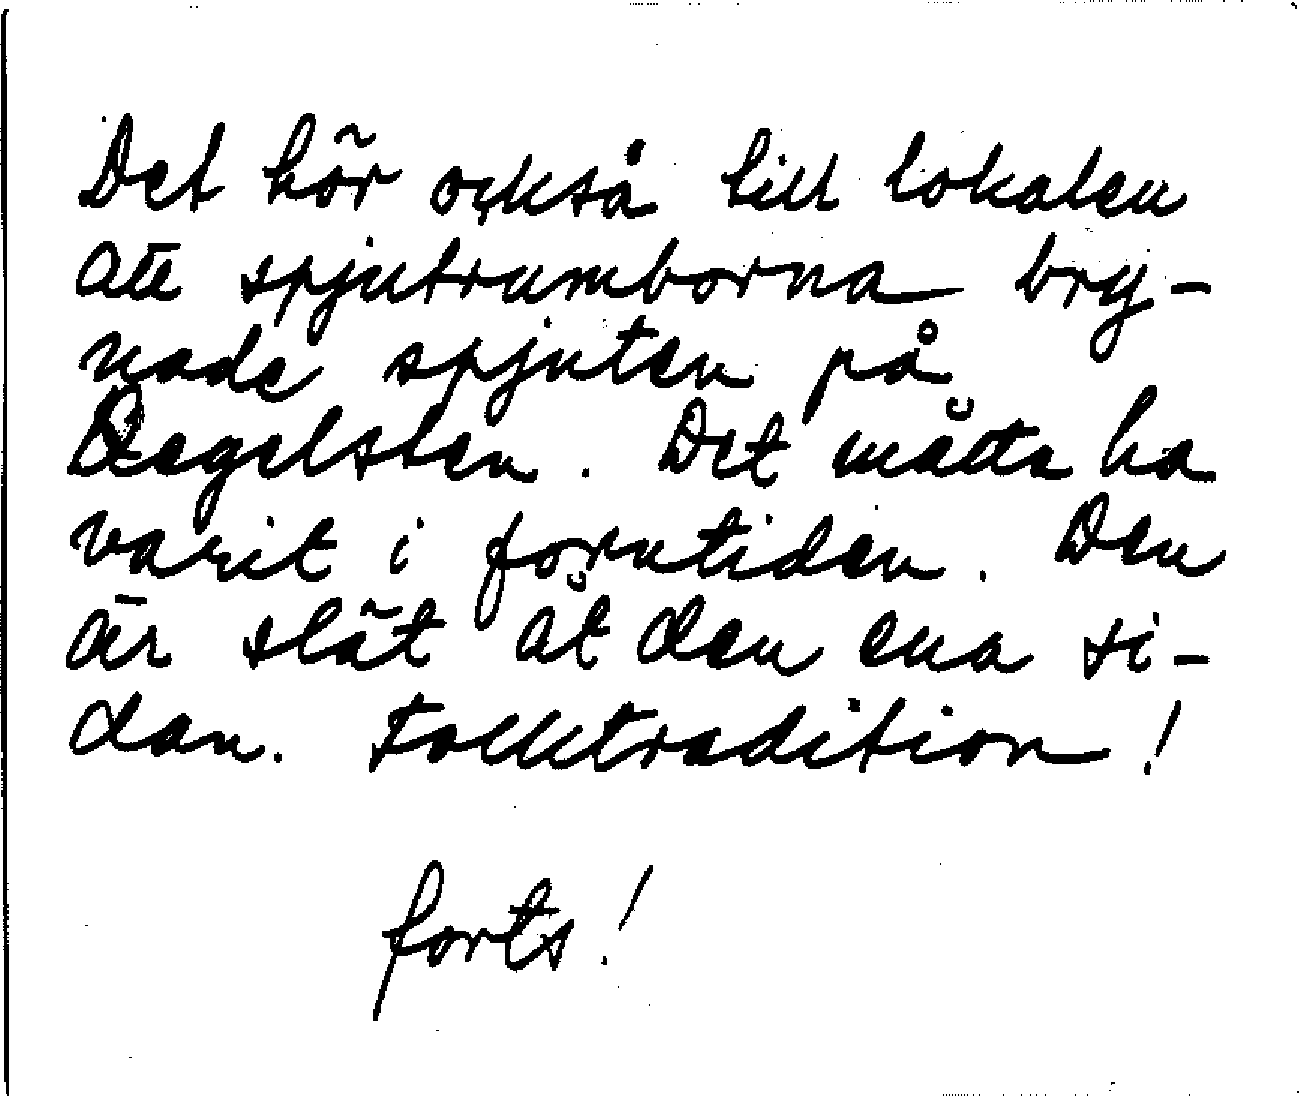 Det hör också till lokalen
att spjutrumborna bry-
nade spjuten på
Degelsten. Det måtte ha
varit i forntiden. Den
är slät åt den ena si-
dan. Folktradition!
forts!